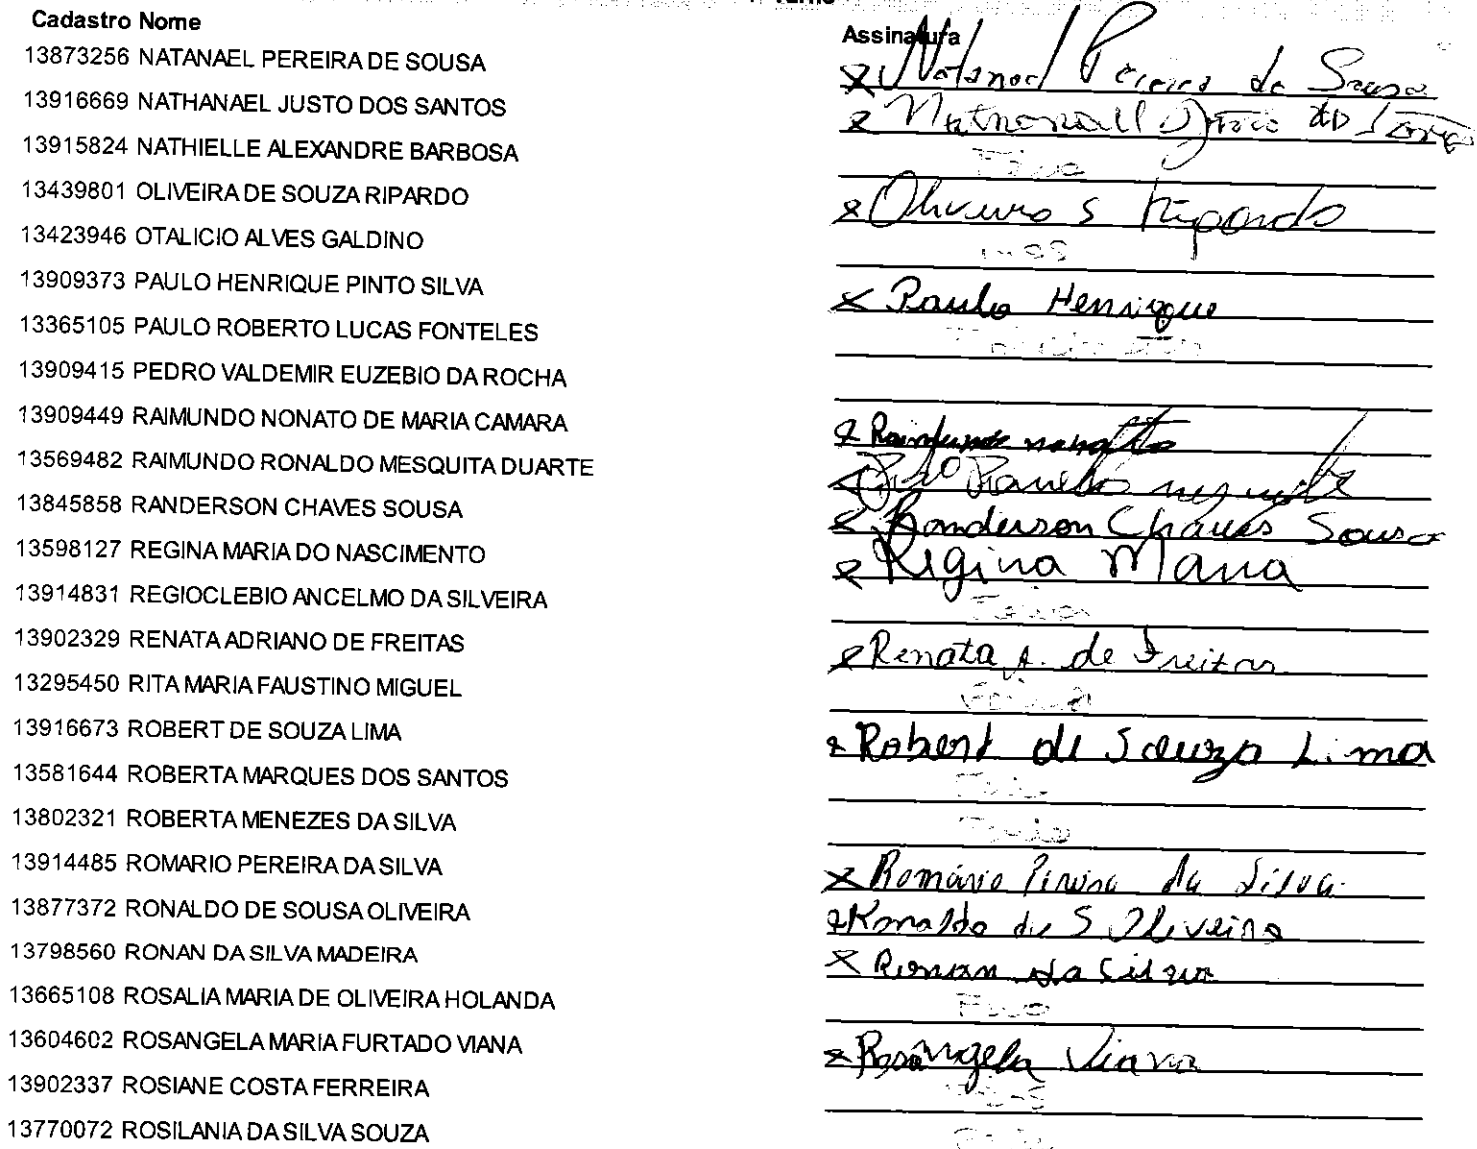 Cadastro Nome Assinatura
13873256 NATANAEL PEREIRA DE SOUSA Natanael Pereira de Sousa
13916669 NATHANAEL JUSTO DOS SANTOS
13915824 NATHIELLE ALEXANDRE BARBOSA
13439801 OLIVEIRA DE SOUZA RIPARDO Oliveira S Ripardo
13423946 OTALICIO ALVES GALDINO
13909373 PAULO HENRIQUE PINTO SILVA Paulo Henrique
13365105 PAULO ROBERTO LUCAS FONTELES
13909415 PEDRO VALDEMIR EUZEBIO DA ROCHA
13909449 RAIMUNDO NONATO DE MARIA CAMARA Raimundo nonatto
13569482 RAIMUNDO RONALDO MESQUITA DUARTE
13845858 RANDERSON CHAVES SOUSA Randerson Chaves Sousa
13598127 REGINA MARIA DO NASCIMENTO Regina Maria
13914831 REGIOCLEBIO ANCELMO DA SILVEIRA
13902329 RENATA ADRIANO DE FREITAS Renata A. de Freitas
13295450 RITA MARIA FAUSTINO MIGUEL
13916673 ROBERT DE SOUZA LIMA Robert de Souza Lima
13581644 ROBERTA MARQUES DOS SANTOS
13802321 ROBERTA MENEZES DA SILVA
13914485 ROMARIO PEREIRA DA SILVA Romário Pereira da Silva
13877372 RONALDO DE SOUSA OLIVEIRA Ronaldo de S Oliveira
13798560 RONAN DA SILVA MADEIRA Ronan da Silva
13665108 ROSALIA MARIA DE OLIVEIRA HOLANDA
13604602 ROSANGELA MARIA FURTADO VIANA Rosângela Viana
13902337 ROSIANE COSTA FERREIRA
13770072 ROSILANIA DA SILVA SOUZA